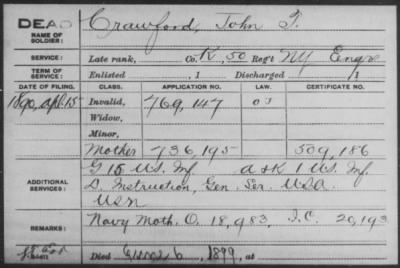 DEAD
Crawford, John T.
NAME OF SOLDIER:
SERVICE: Late rank, Co. K, 50 Reg't NY Engrs
TERM OF SERVICE: Enlisted , 1 Discharged , 1
DATE OF FILING. CLASS. APPLICATION NO. LAW. CERTIFICATE NO.
1890, Apl. 15 Invalid, 769,147
Widow,
Minor,
Mother 736,195 509,186
ADDITIONAL SERVICES: G 15 U.S. Inf. A & K 1 U.S. Inf.
D. Instruction, Gen. Ser. U.S.A.
U.S.N
REMARKS: Navy Moth. O. 18,983, I.C. 20,193
Died 1899, at